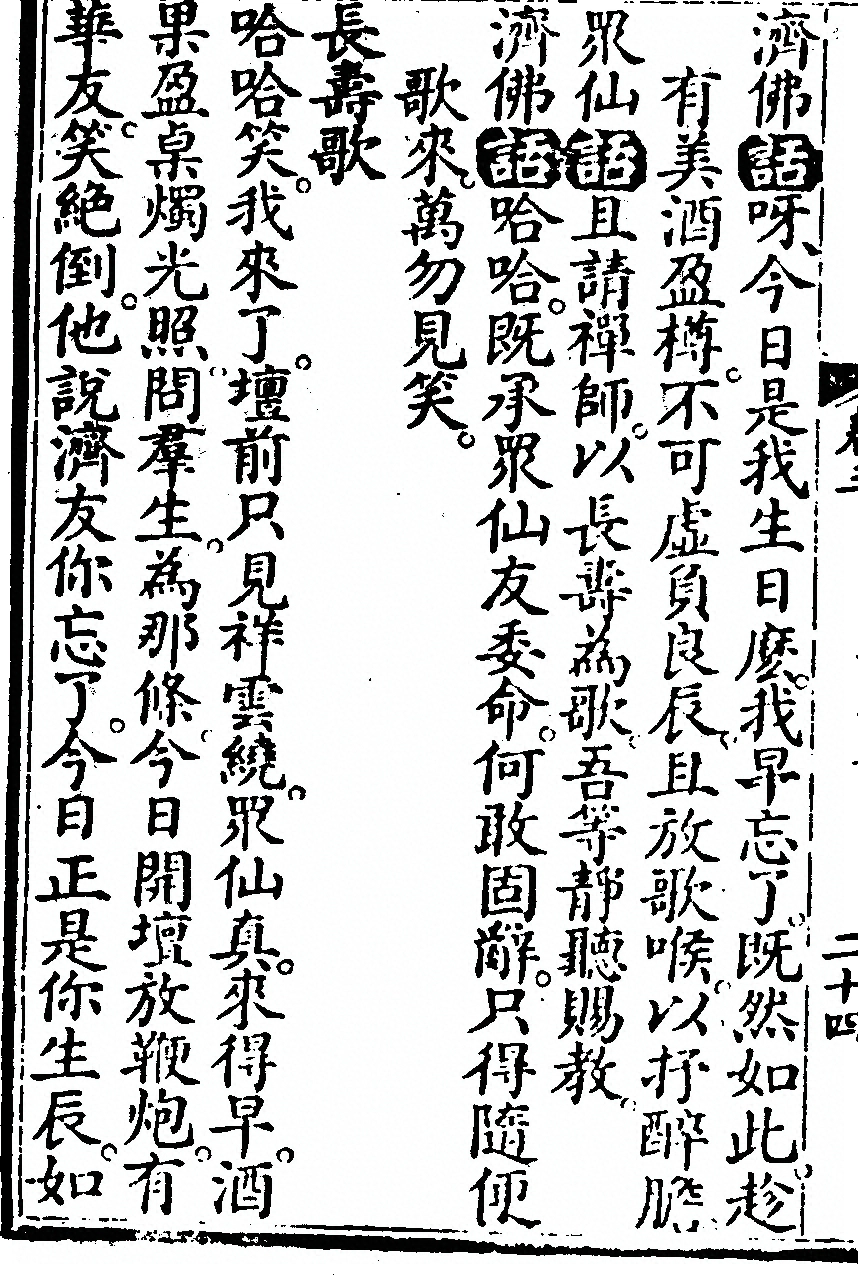 濟佛話呀、今日是我生日麽。我早忘了。既然如此。趁
有美酒盈樽。不可虛負良辰。且放歌喉。以抒醉膽
眾仙話且請禪師。以長壽為歌。吾等靜聽賜教。
濟佛話哈哈。既承眾仙友委命。何敢固辭。只得隨便
歌來。萬勿見笑。
長壽歌
哈哈笑。我來了。壇前只見祥雲繞。眾仙真。來得早。酒
果盈桌燭光照。問羣生。為那條。今日開壇放鞭炮。有
華友。笑絕倒。他說濟友你忘了。今日正是你生辰。如
二十四